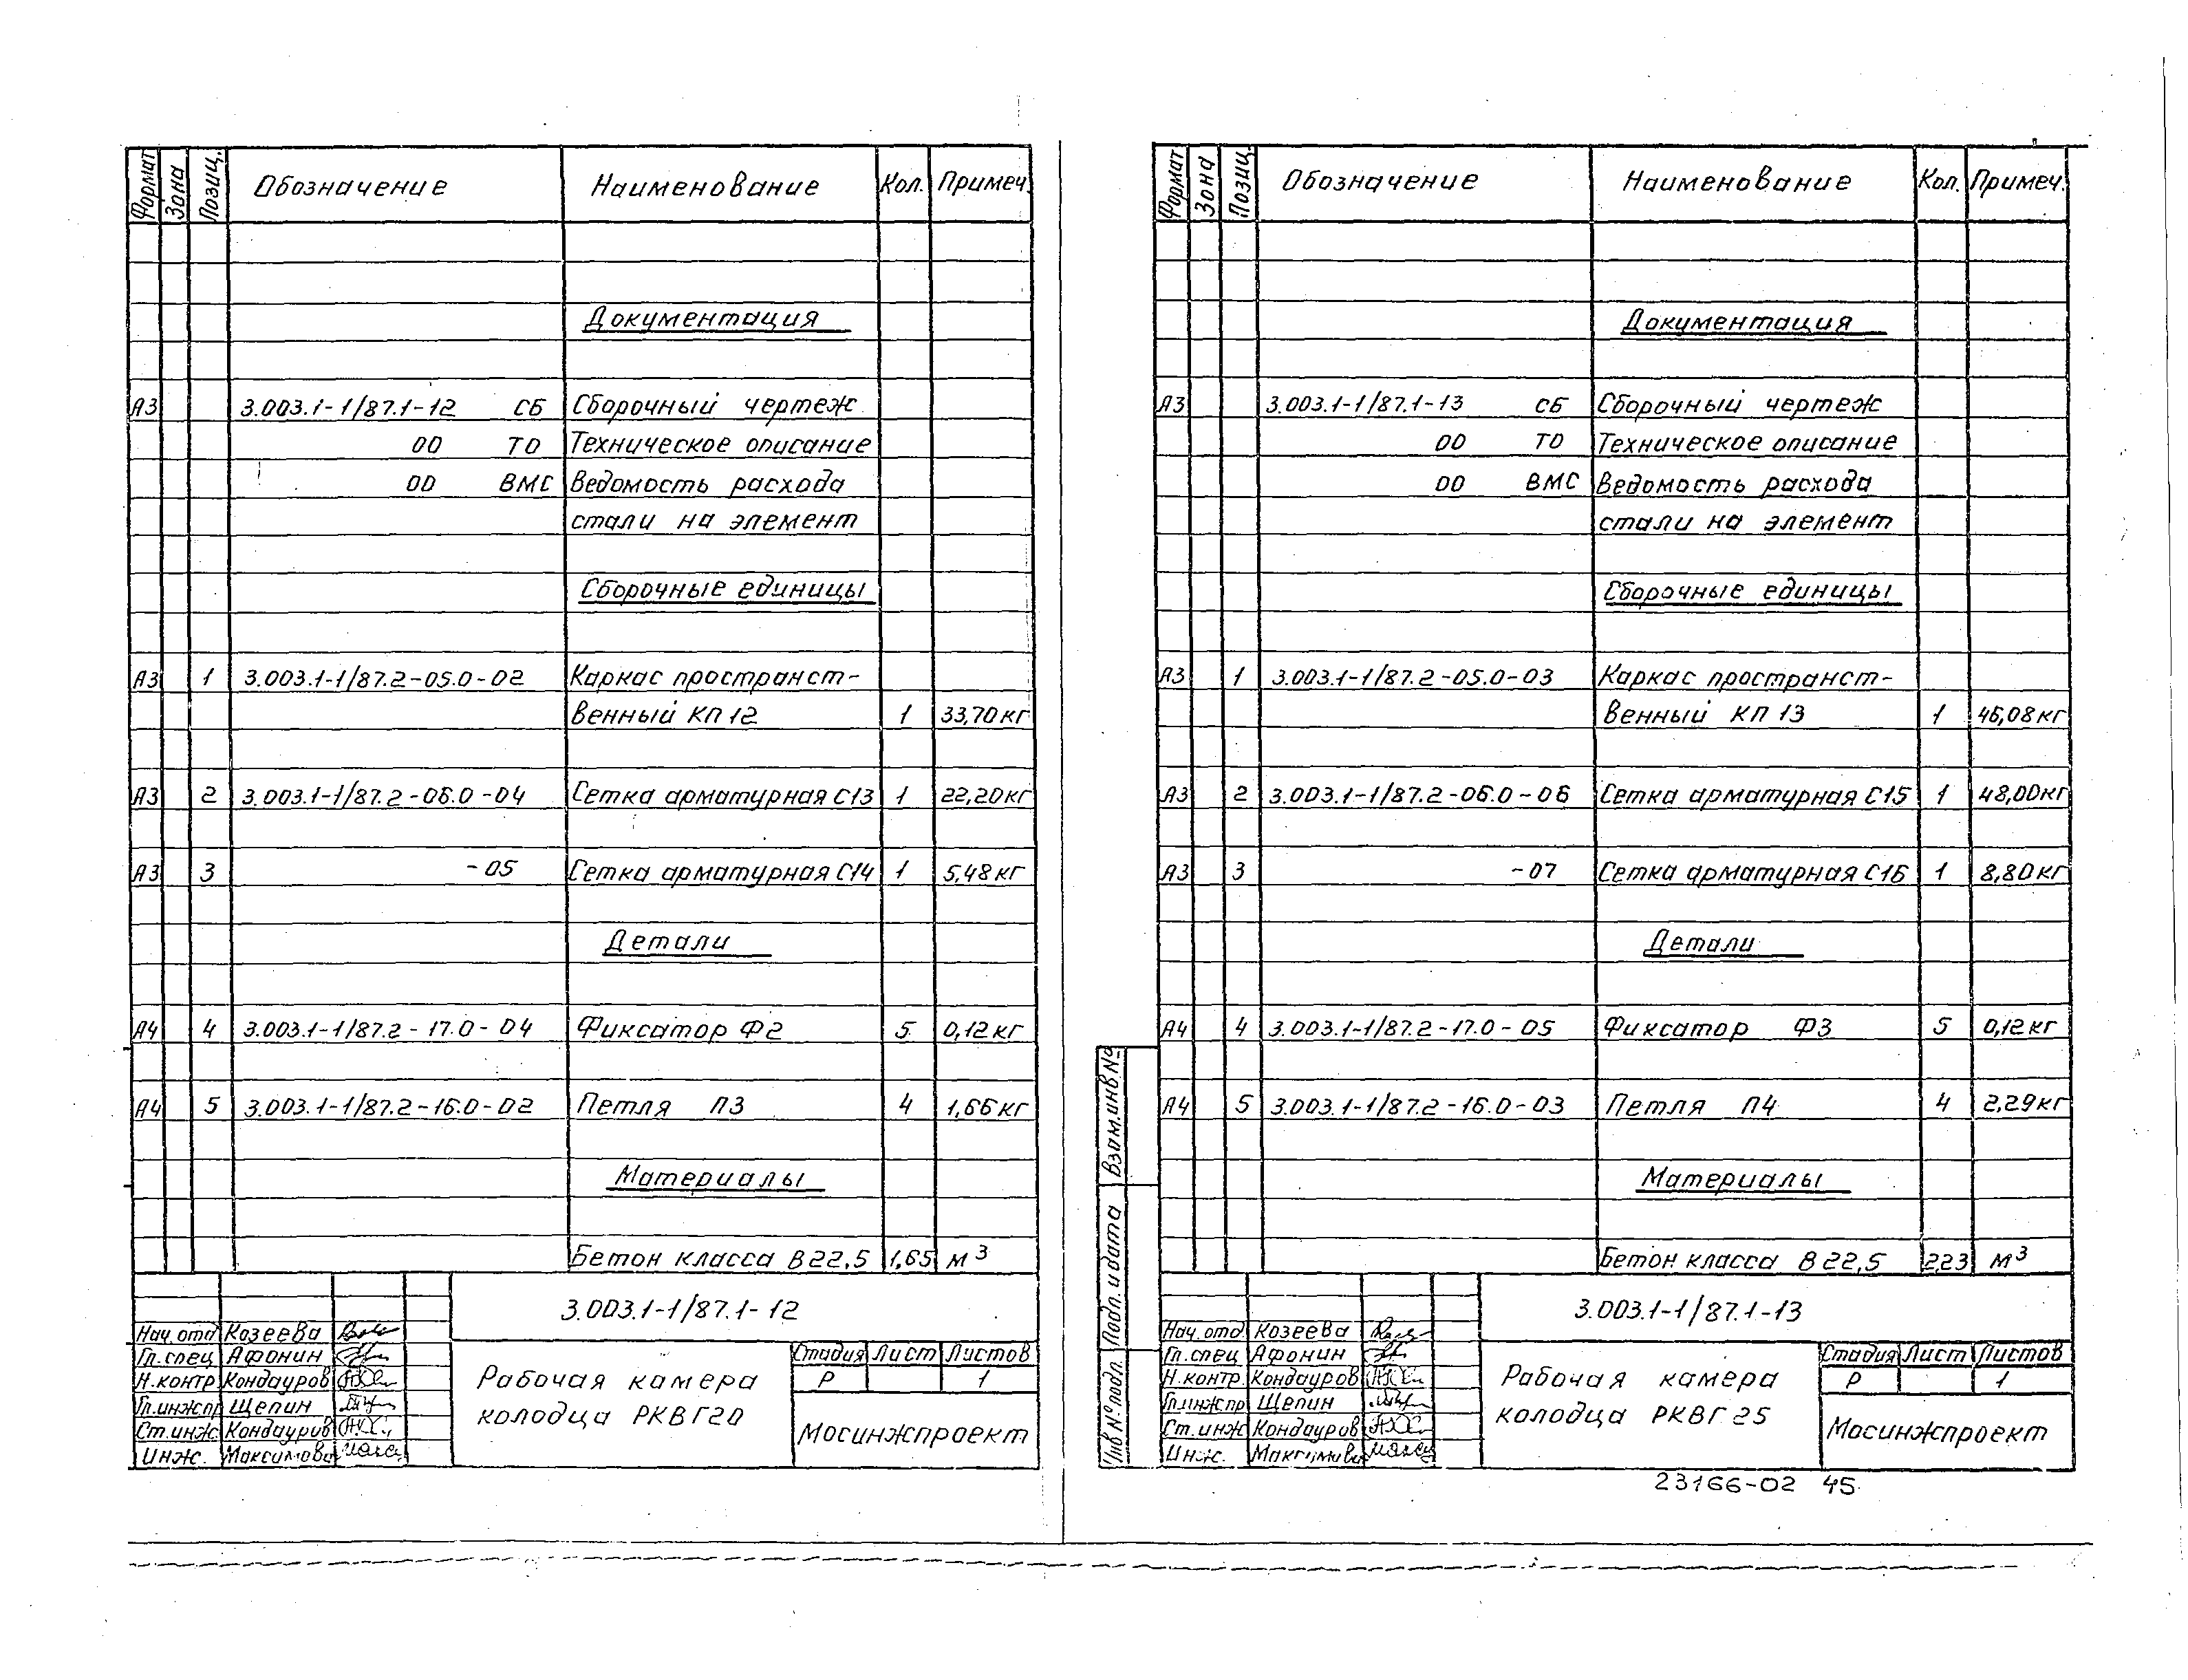 Формат Зона Позиц. Обозначение Наименование Кол. Примеч.
Документация
А3 3.003.1-1/87.1-12 СБ Сборочный чертеж
00 ТО Техническое описание
00 ВМС Ведомость расхода
стали на элемент
Сборочные единицы
А3 1 3.003.1-1/87.2-05.0-02 Каркас пространст-
венный КП 12 1 33,70 кг
А3 2 3.003.1-1/87.2-06.0-04 Сетка арматурная С13 1 22,20 кг
А3 3 -05 Сетка арматурная С14 1 5,48 кг
Детали
А4 4 3.003.1-1/87.2-17.0-04 Фиксатор Ф2 5 0,12 кг
А4 5 3.003.1-1/87.2-16.0-02 Петля П3 4 1,66 кг
Материалы
Бетон класса В 22,5 1,65 м³
3.003.1-1/87.1-12
Нач. отд Козеева
Гл. спец Афонин
Н. контр Кондауров
Гл. инж пр Щепин
Ст. инж Кондауров
Инж. Максимова
Рабочая камера
колодца РКВГ20
Стадия Лист Листов
Р 1
Мосинжпроект
Формат Зона Позиц. Обозначение Наименование Кол. Примеч.
Документация
А3 3.003.1-1/87.1-13 СБ Сборочный чертеж
00 ТО Техническое описание
00 ВМС Ведомость расхода
стали на элемент
Сборочные единицы
А3 1 3.003.1-1/87.2-05.0-03 Каркас пространст-
венный КП 13 1 46,08 кг
А3 2 3.003.1-1/87.2-06.0-06 Сетка арматурная С15 1 48,00 кг
А3 3 -07 Сетка арматурная С16 1 8,80 кг
Детали
А4 4 3.003.1-1/87.2-17.0-05 Фиксатор Ф3 5 0,12 кг
А4 5 3.003.1-1/87.2-16.0-03 Петля П4 4 2,29 кг
Материалы
Бетон класса В 22,5 2,23 м³
Взам. инв. №
Подп. и дата
Инв № подл.
3.003.1-1/87.1-13
Нач. отд Козеева
Гл. спец Афонин
Н. контр. Кондауров
Гл. инж пр Щепин
Ст. инж Кондауров
Инж. Максимова
Рабочая камера
колодца РКВГ 25
Стадия Лист Листов
Р 1
Мосинжпроект
23166-02 45